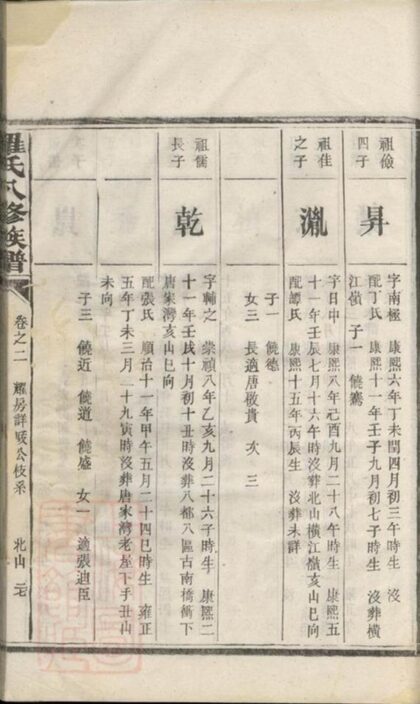 祖儉
四子
昇
字南極 康熙六年丁未閏四月初三午時生 沒
配丁氏 康熙十一年壬子九月初七子時生 沒葬橫
江嶺 子一 饒騫
祖佳
之子
胤
字日中 康熙八年己酉九月二十八午時生 康熙五
十一年壬辰七月十六午時沒葬北山橫江嶺亥山巳向
配譚氏 康熙十五年丙辰生 沒葬未詳
子一 饒德
女三 長適唐敬貴 次 三
祖儒
長子
乾
字輔之 崇禎八年乙亥九月二十六子時生 康熙二
十一年壬戌十月初十丑時沒葬八都八區古南橋衝下
唐家灣亥山巳向
配張氏 順治十一年甲午五月二十四巳時生 雍正
五年丁未三月二十九寅時沒葬唐家灣老屋下手丑山
未向
子三 饒近 饒道 饒盛 女一 適張迪臣
羅氏八修族譜
卷之二 耀房詳
公枝系 北山